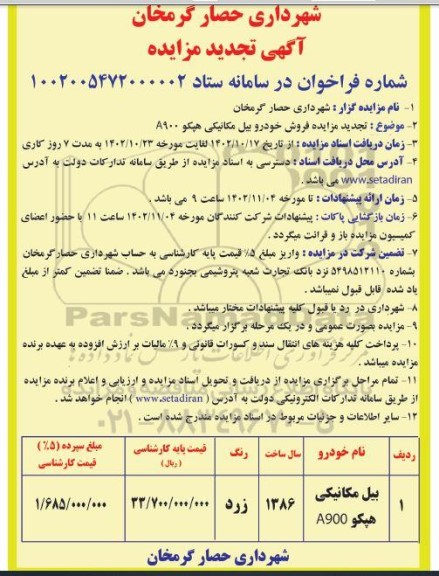 شهرداری حصار گرمخان
آگهی تجدید مزایده
شماره فراخوان در سامانه ستاد ۱۰۰۲۰۰۵۴۷۲۰۰۰۰۰۲
۱- نام مزایده گزار : شهرداری حصار گرمخان
۲- موضوع : تجدید مزایده فروش خودرو بیل مکانیکی هپکو A۹۰۰
۳- زمان دریافت اسناد مزایده : از تاریخ ۱۴۰۲/۱۰/۱۷ لغایت مورخه ۱۴۰۲/۱۰/۲۳ به مدت ۷ روز کاری
۴- آدرس محل دریافت اسناد : دسترسی به اسناد مزایده از طریق سامانه تدارکات دولت به آدرس
www.setadiran می باشد .
۵- زمان ارائه پیشنهادات : تا مورخه ۱۴۰۲/۱۱/۰۴ ساعت ۹ می باشد .
۶- زمان بازگشایی پاکات : پیشنهادات شرکت کنندگان مورخه ۱۴۰۲/۱۱/۰۴ ساعت ۱۱ با حضور اعضای
کمیسیون مزایده باز و قرائت میگردد .
۷- تضمین شرکت در مزایده : واریز مبلغ ۵٪ قیمت پایه کارشناسی به حساب شهرداری حصارگرمخان
بشماره ۵۴۹۸۵۱۲۱۱۰ نزد بانک تجارت شعبه پتروشیمی بجنورد می باشد . ضمنا تضمین کمتر از مبلغ
یاد شده قابل قبول نمیباشد .
۸- شهرداری در رد یا قبول کلیه پیشنهادات مختار میباشد .
۹- مزایده بصورت عمومی و در یک مرحله برگزار میگردد .
۱۰- پرداخت کلیه هزینه های انتقال سند و کسورات قانونی و ۹٪ مالیات بر ارزش افزوده به عهده برنده
مزایده میباشد .
۱۱- تمام مراحل برگزاری مزایده از دریافت و تحویل اسناد مزایده و ارزیابی و اعلام برنده مزایده
از طریق سامانه تدارکات الکترونیکی دولت به آدرس ( www.setadiran ) انجام خواهد شد .
۱۲- سایر اطلاعات و جزئیات مربوط در اسناد مزایده مندرج شده است .
ردیف نام خودرو سال ساخت رنگ قیمت پایه کارشناسی (ریال) مبلغ سپرده (۵٪) قیمت کارشناسی
۱ بیل مکانیکی هپکو A900 ۱۳۸۶ زرد ۳۳/۷۰۰/۰۰۰/۰۰۰ ۱/۶۸۵/۰۰۰/۰۰۰
شهرداری حصار گرمخان
ParsNamadData